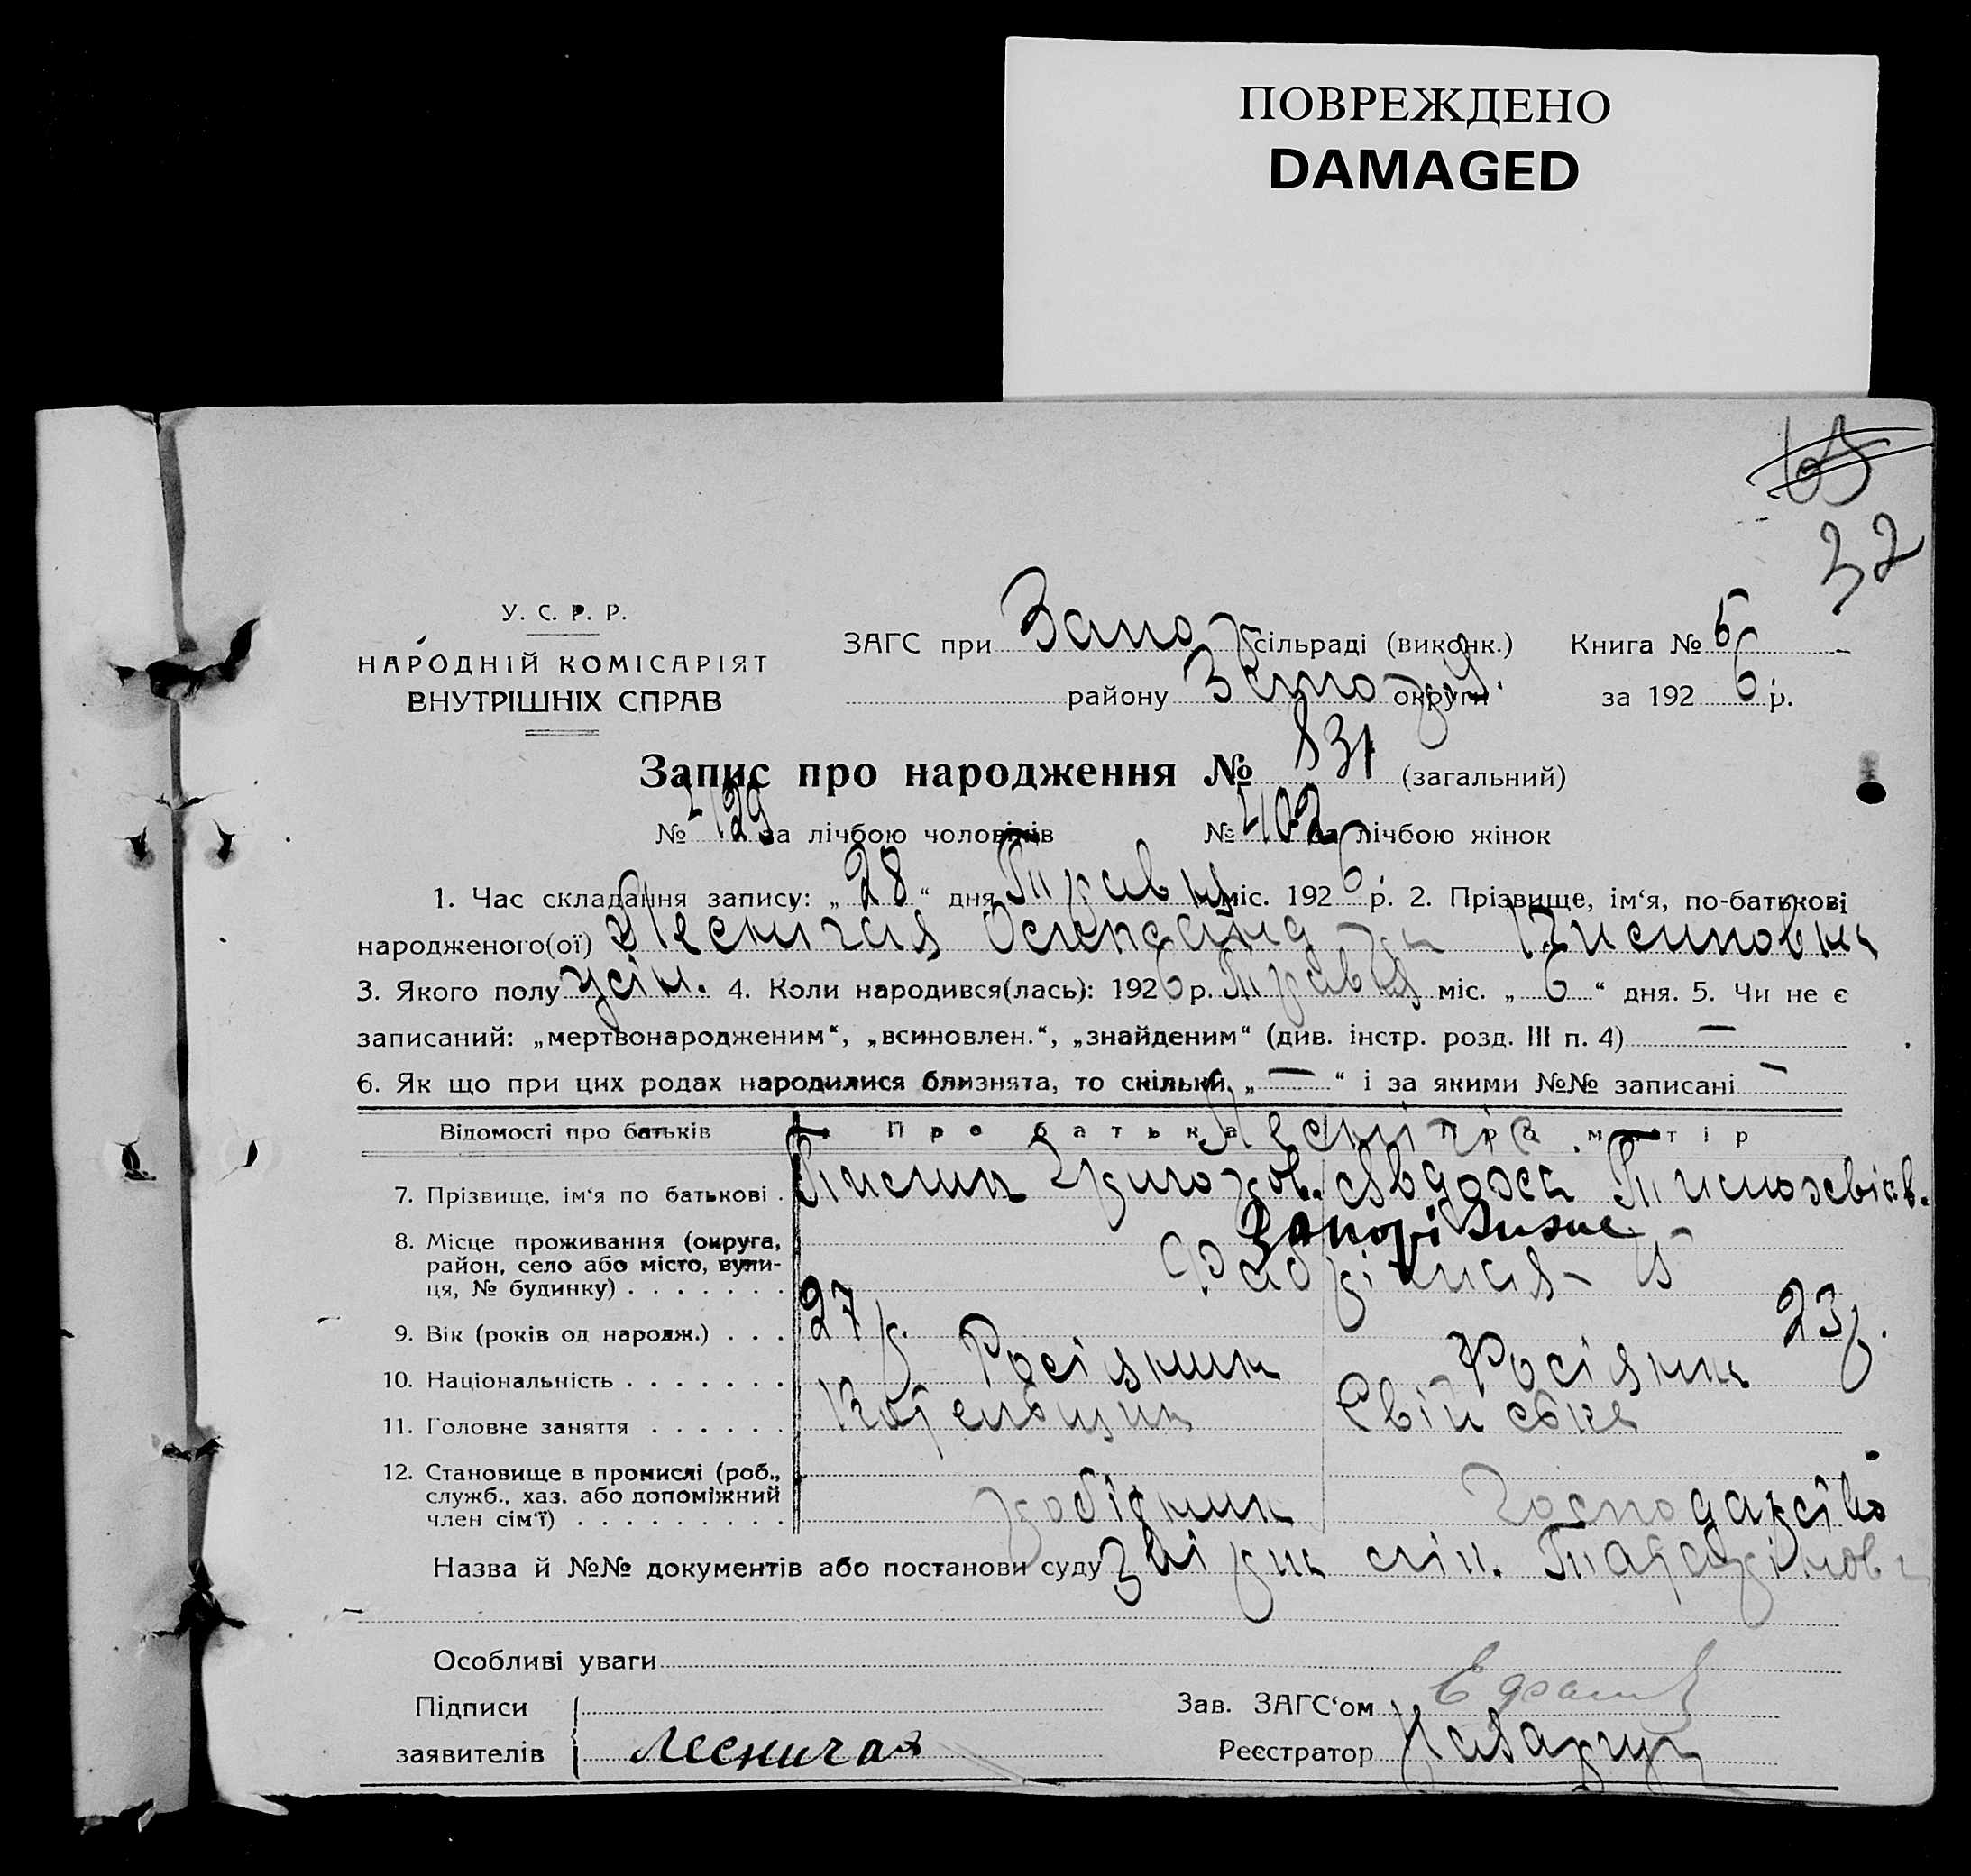 ПОВРЕЖДЕНО
DAMAGED
65
32
У. С. Р. Р.
НАРОДНІЙ КОМІСАРІЯТ
ВНУТРІШНІХ СПРАВ
ЗАГС при Запор сільраді (виконк.) Книга № 5
району Запор округи за 1926 р.
Запис про народження № 831 (загальний)
№ 429 за лічбою чоловіків № 402 за лічбою жінок
1. Час складання запису: „28“ дня Травня міс. 1926 р. 2. Прізвище, ім‘я, по-батькові
народженого(ої) Лесничая
3. Якого полу 4. Коли народився(лась): 1926 р. Травня міс. „6“ дня. 5. Чи не є
записаний: „мертвонародженим“, „всиновлен.“, „знайденим“ (див. інстр. розд. III п. 4) —
6. Як що при цих родах народилися близнята, то скільки „—“ і за якими №№ записані —
Відомості про батьків Про батька Про матір
7. Прізвище, ім‘я по батькові Григоров. Явдоха Тимохвієв.
8. Місце проживання (округа, Запоріжжє
район, село або місто, вули-
ця, № будинку) 15
9. Вік (років од народж.) 27 р. 23 р.
10. Національність Росіянин Росіянка
11. Головне заняття Котельщик Свійське
12. Становище в промислі (роб.,
служб., хаз. або допоміжний
член сім‘ї) робітник господарство
Назва й №№ документів або постанови суду
Особливі уваги
Підписи Зав. ЗАГС‘ом
заявителів Лесничая Реєстратор